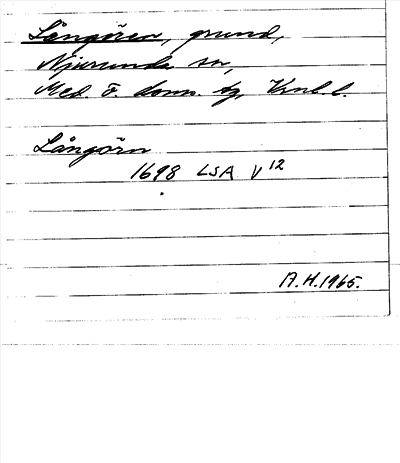 Långören, grund,
Njurunda sn,
Med. ö. doms. tg, Vnl. l.
Långörn
1698 LSA V 12
A.H. 1965.